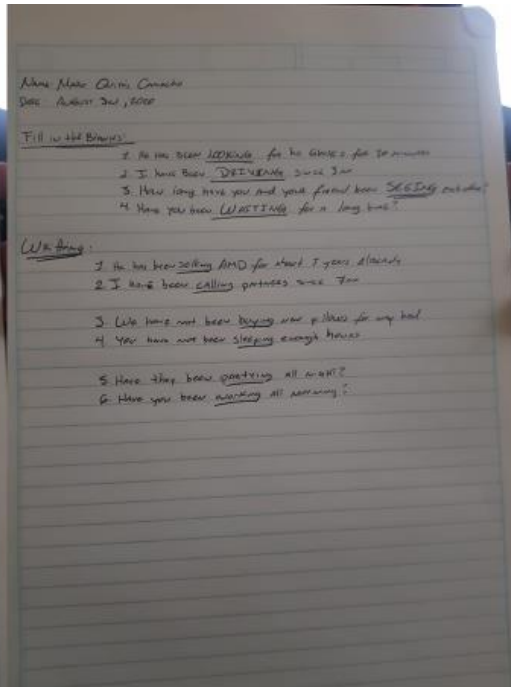 Name: Mario Quirós Camacho
Date: August 3rd, 2020
Fill in the Blanks:
1. He has been LOOKING for his glasses for 20 minutes
2. I have been DRIVING since 3am
3. How long have you and your friend been SEEING each other?
4. Have you been WAITING for a long time?
Writing:
1. He has been selling AMD for about 7 years already
2. I have been calling partners since 7am
3. We have not been buying new pillows for my bed
4. You have not been sleeping enough hours
5. Have they been partying all night?
6. Have you been working all morning?